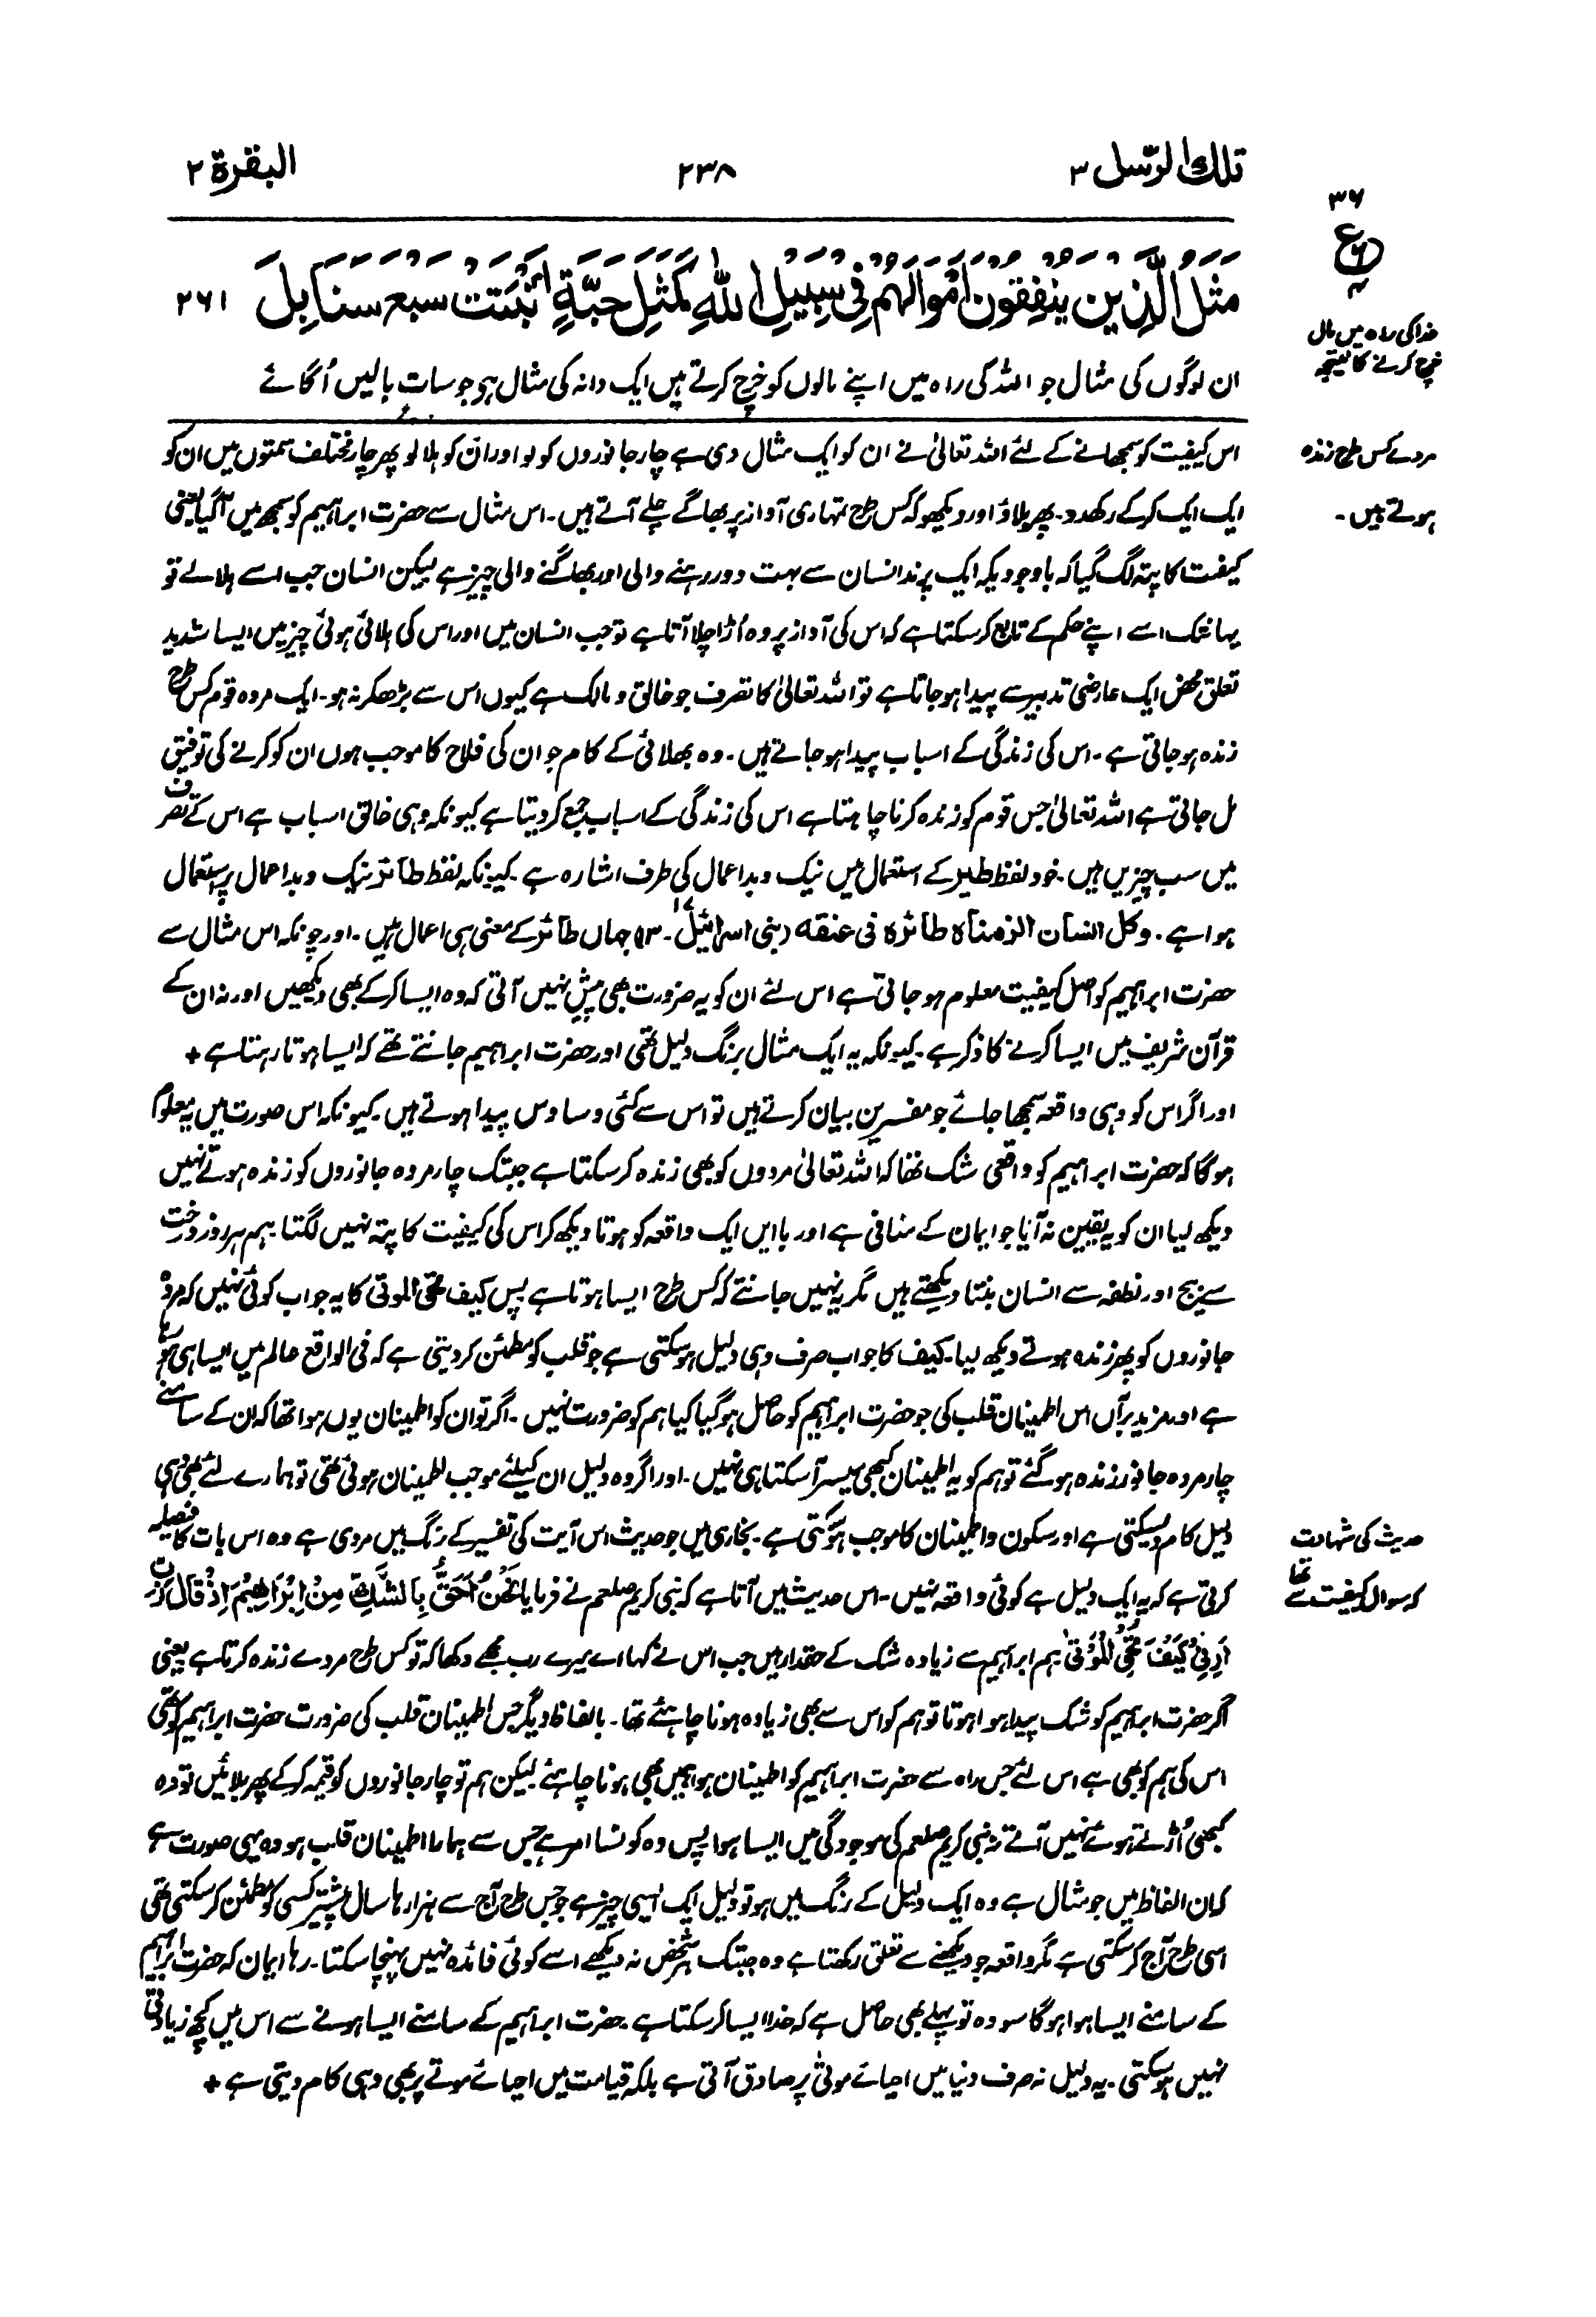 تلك الرّسل ۳
۲۳۸
البقرة ۲
۳۶
ع
۶
۴
مَثَلُ الَّذِينَ يُنْفِقُونَ اَمْوَالَهُمْ فِي سَبِيلِ اللّٰهِ كَمَثَلِ حَبَّةٍ اَنْبَتَتْ سَبْعَ سَنَابِلَ
۲۶۱
خدا کی راہ میں مال
خرچ کرنے کا نتیجہ
ان لوگوں کی مثال جو اللہ کی راہ میں اپنے مالوں کو خرچ کرتے ہیں ایک دانہ کی مثال ہی جو سات بالیں اُگائے
مردے کس طرح زندہ
ہوتے ہیں ۔
اس کیفیت کو سمجھانے کے لئے اللہ تعالیٰ نے ان کو ایک مثال دی ہے چار جانوروں کو لو اور ان کو ہلا لو پھر چار مختلف سمتوں میں ان کو
ایک ایک کر کے رکھدو۔ پھر بلاؤ اور دیکھو کہ کس طرح تمہاری آواز پر بھاگے چلے آتے ہیں ۔ اس مثال سے حضرت ابراہیم کو سمجھ میں آگیا یعنی
کیفت کا پتہ لگ گیا کہ باوجودیکہ ایک پرند انسان سے بہت دور رہنے والی اور بھاگنے والی چیز ہے لیکن انسان جب اسے ہلالے تو
یہانتک اسے اپنے حکم کے تابع کر سکتا ہے کہ اس کی آواز پر وہ اُڑا چلا آتا ہے تو جب انسان میں اور اس کی ہلائی ہوئی چیز میں ایسا شدید
تعلق محض ایک عارضی تدبیر سے پیدا ہو جاتا ہے تو اللہ تعالیٰ کا تصرف جو خالق و مالک ہے کیوں اس سے بڑھکر نہ ہو ۔ ایک مردہ قوم کس طرح
زندہ ہو جاتی ہے ۔ اس کی زندگی کے اسباب پیدا ہو جاتے ہیں ۔ وہ بھلائی کے کام جو ان کی فلاح کا موجب ہوں ان کو کرنے کی توفیق
مل جاتی ہے اللہ تعالیٰ جس قوم کو زندہ کرنا چاہتا ہے اس کی زندگی کے اسباب جمع کر دیتا ہے کیونکہ وہی خالق اسباب ہے اس کے تصرف
میں سب چیزیں ہیں ۔ خود لفظ طیر کے استعمال میں نیک و بد اعمال کی طرف اشارہ ہے ۔ کیونکہ لفظ طائر نیک و بد اعمال پر استعمال
ہوا ہے ۔ وکل انسان الزمناہ طائرہ فی عنقہ (بنی اسرائیل ۱۷ ۔ ۱۳) جہاں طائر کے معنی ہی اعمال ہیں ۔ اور چونکہ اس مثال سے
حضرت ابراہیم کو اصل کیفیت معلوم ہو جاتی ہے اس لئے ان کو یہ ضرورت بھی پیش نہیں آتی کہ وہ ایسا کر کے بھی دیکھیں اور نہ ان کے
قرآن شریف میں ایسا کرنے کا ذکر ہے ۔ کیونکہ یہ ایک مثال برنگ دلیل تھی اور حضرت ابراہیم جانتے تھے کہ ایسا ہوتا رہتا ہے +
اور اگر اس کو وہی واقعہ سمجھا جائے جو مفسرین بیان کرتے ہیں تو اس سے کئی وساوس پیدا ہوتے ہیں ۔ کیونکہ اس صورت میں یہ معلوم
ہوگا کہ حضرت ابراہیم کو واقعی شک تھا کہ اللہ تعالیٰ مردوں کو بھی زندہ کر سکتا ہے جبتک چار مردہ جانوروں کو زندہ ہوتے نہیں
دیکھ لیا ان کو یہ یقین نہ آیا جو ایمان کے منافی ہے اور با ایں ایک واقعہ کو ہوتا دیکھ کر اس کی کیفیت کا پتہ نہیں لگتا ۔ ہم ہر روز درخت
سے بیج اور نطفہ سے انسان بنتا دیکھتے ہیں مگر یہ نہیں جانتے کہ کس طرح ایسا ہوتا ہے پس کیف تحی الموتی کا یہ جواب کوئی نہیں کہ مردہ
جانوروں کو پھر زندہ ہوتے دیکھ لیا ۔ کیف کا جواب صرف وہی دلیل ہو سکتی ہے جو قلب کو مطمئن کر دیتی ہے کہ فی الواقع عالم میں ایسا ہی ہوتا
ہے اور مزید برآں اس اطمینان قلب کی جو حضرت ابراہیم کو حاصل ہو گیا کیا ہم کو ضرورت نہیں ۔ اگر تو ان کو اطمینان یوں ہوا تھا کہ ان کے سامنے
چار مردہ جانور زندہ ہو گئے تو ہم کو یہ اطمینان کبھی میسر آ سکتا ہی نہیں ۔ اور اگر وہ دلیل ان کیلئے موجب اطمینان ہوئی تھی تو ہمارے لئے بھی وہی
حدیث کی شہادت
کہ سوال کیفیت سے تھا
دلیل کام دیسکتی ہے اور سکون و اطمینان کا موجب ہو سکتی ہے ۔ بخاری میں جو حدیث اس آیت کی تفسیر کے رنگ میں مروی ہے وہ اس بات کا فیصلہ
کرتی ہے کہ یہ ایک دلیل ہے کوئی واقعہ نہیں ۔ اس حدیث میں آتا ہے کہ نبی کریم صلعم نے فرمایا نَحْنُ اَحَقُّ بِالشَّكِّ مِنْ اِبْرَاهِيْمَ اِذْ قَالَ رَبِّ
اَرِنِيْ كَيْفَ تُحْيِ الْمَوْتٰى ہم ابراہیم سے زیادہ شک کے حقدار ہیں جب اس نے کہا اے میرے رب مجھے دکھا کہ تو کس طرح مردے زندہ کرتا ہے یعنی
اگر حضرت ابراہیم کو شک پیدا ہوا ہوتا تو ہم کو اس سے بھی زیادہ ہونا چاہئے تھا ۔ بالفاظ دیگر جس اطمینان قلب کی ضرورت حضرت ابراہیم کو تھی
اس کی ہم کو بھی ہے اس لئے جس راہ سے حضرت ابراہیم کو اطمینان ہوا ہمیں بھی ہونا چاہئے لیکن ہم تو چار جانوروں کو قیمہ کر کے پھر بلائیں تو وہ
کبھی اُڑتے ہوئے نہیں آتے نہ نبی کریم صلعم کی موجودگی میں ایسا ہوا پس وہ کونسا امر ہے جس سے ہمارا اطمینان قلب ہو وہ یہی صورت ہے
کہ ان الفاظ میں جو مثال ہے وہ ایک دلیل کے رنگ میں ہو تو دلیل ایک ایسی چیز ہے جو جس طرح آج سے ہزارہا سال پیشتر کسی کو مطمئن کر سکتی تھی
اسی طرح آج کر سکتی ہے مگر واقعہ جو دیکھنے سے تعلق رکھتا ہے وہ جبتک ہر شخص نہ دیکھے اسے کوئی فائدہ نہیں پہنچا سکتا ۔ رہا ایمان کہ حضرت ابراہیم
کے سامنے ایسا ہوا ہوگا سو وہ تو پہلے بھی حاصل ہے کہ خدا ایسا کر سکتا ہے ۔ حضرت ابراہیم کے سامنے ایسا ہونے سے اس میں کچھ زیادتی
نہیں ہو سکتی ۔ یہ دلیل نہ صرف دنیا میں احیائے موتیٰ پر صادق آتی ہے بلکہ قیامت میں احیائے موتے پر بھی وہی کام دیتی ہے +